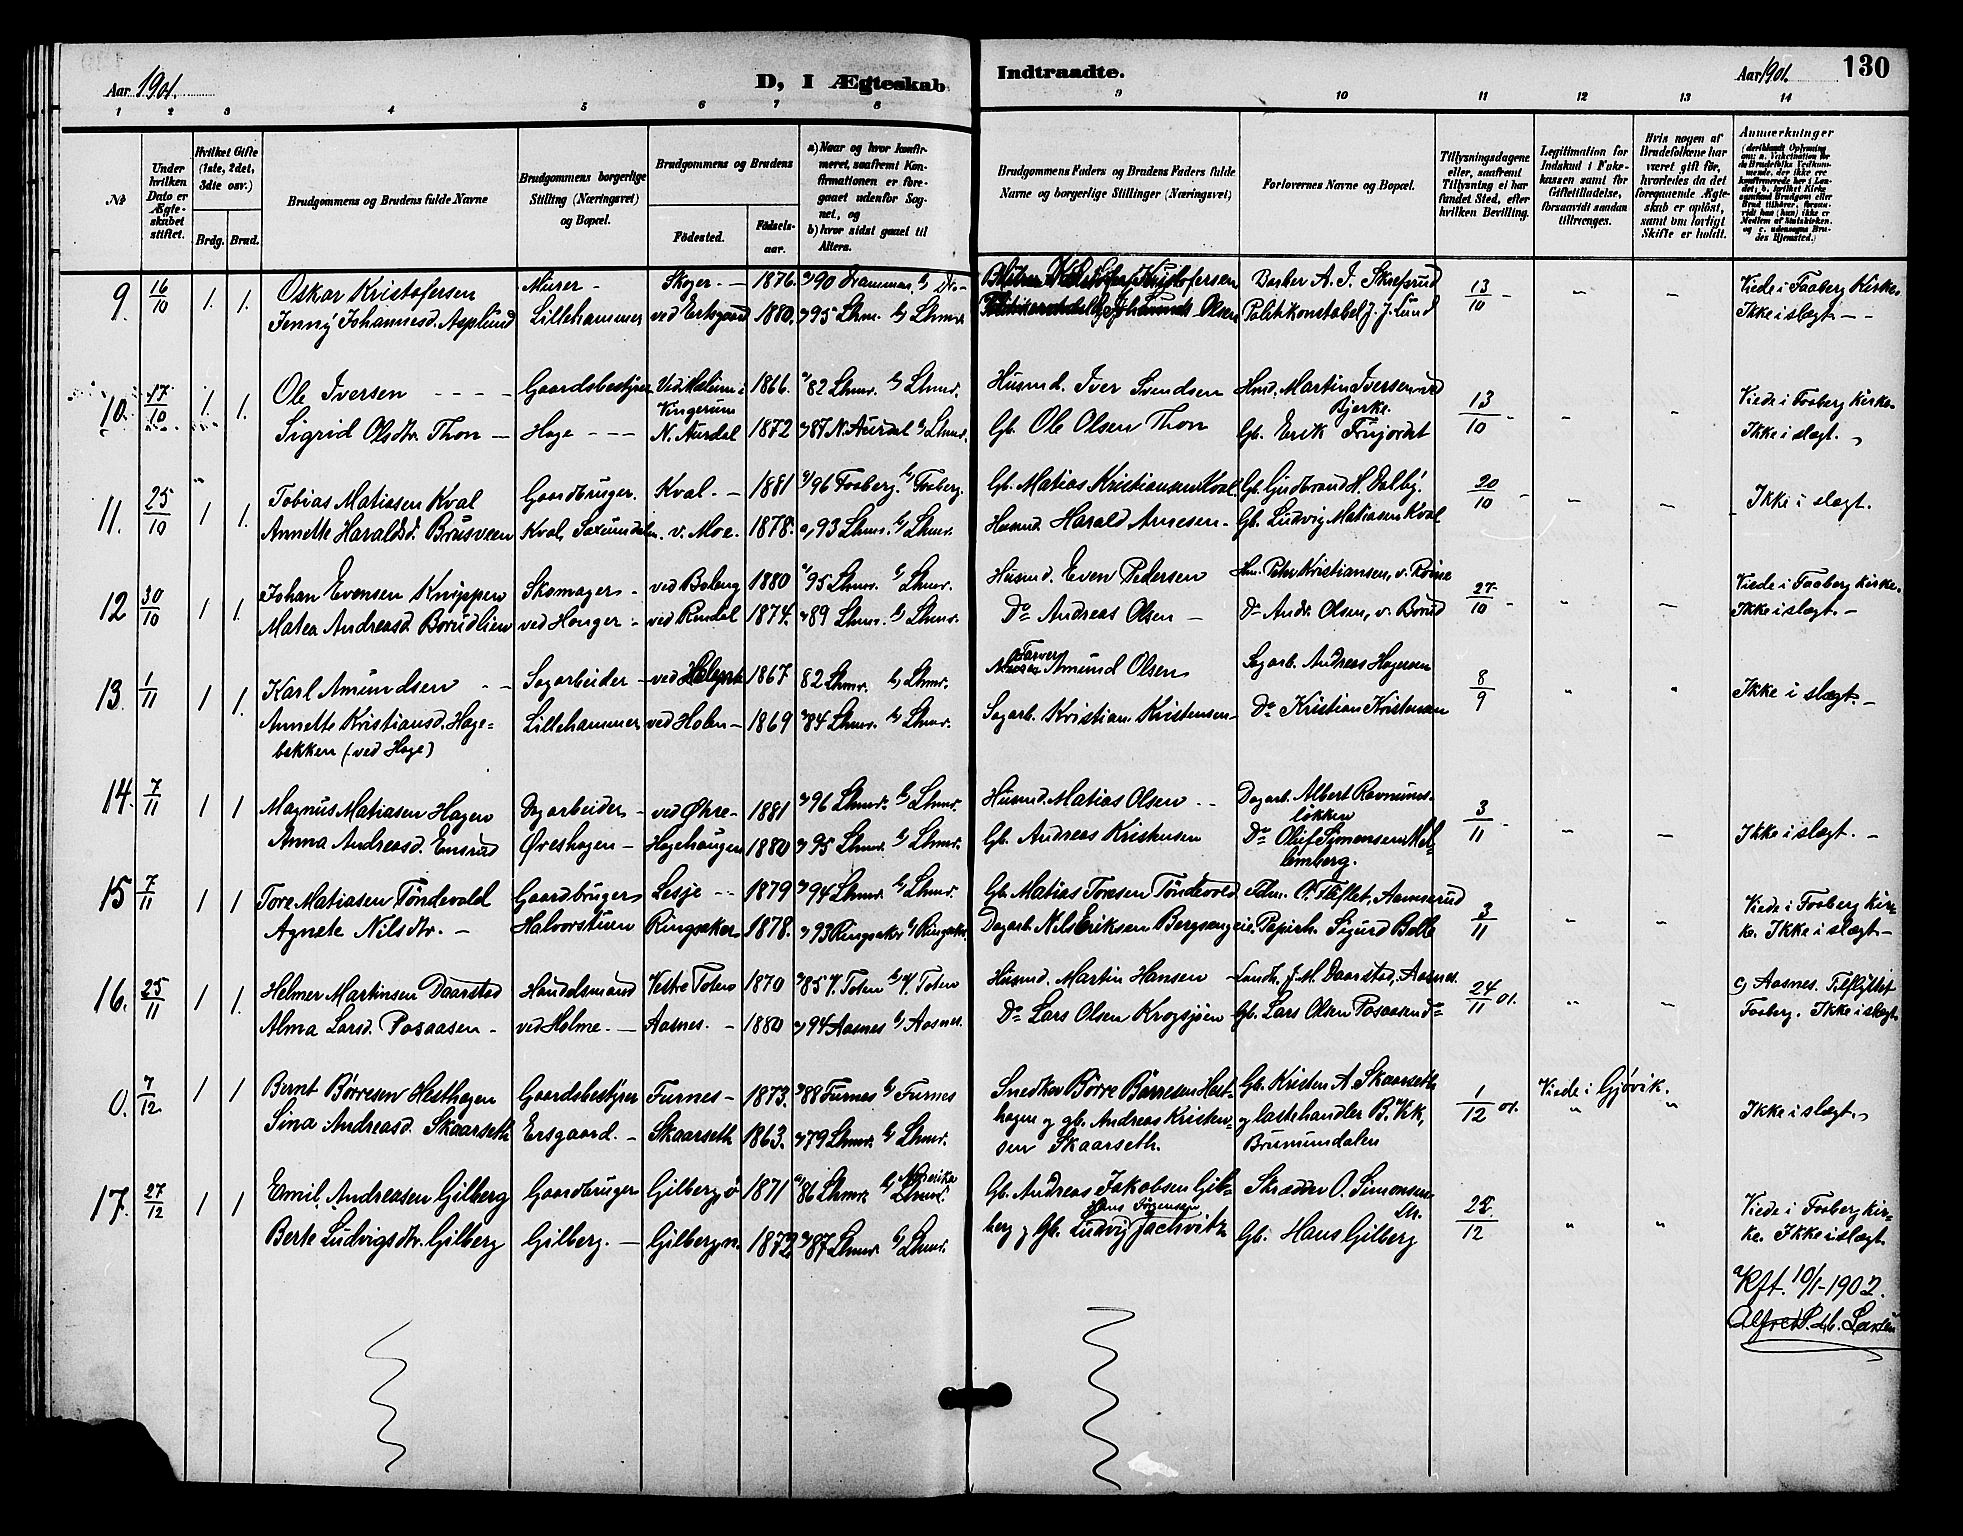 Aar 1901.
D, I Ægteskab Indtraadte.
Aar 1901.
130
1 2 3 4 5 6 7 8 9 10 11 12 13 14
№
Under hvilken Dato er Ægteskabet stiftet.
Hvilket Gifte (1ste, 2det, 3die osv.)
Brdg. Brud.
Brudgommens og Brudens fulde Navne
Brudgommens borgerlige Stilling (Næringsvei) og Bopæl.
Brudgommens og Brudens
Fødested.
Fødselsaar.
a) Naar og hvor konfirmeret, saafremt Konfirmationen er foregaaet udenfor Sognet, og
b) hvor sidst gaaet til Alters.
Brudgommens Faders og Brudens Faders fulde Navne og borgerlige Stillinger (Næringsvei)
Forlovernes Navne og Bopæl.
Tillysningsdagene eller, saafremt Tillysning ei har fundet Sted, efter hvilken Bevilling.
Legitimation for Indskud i Enkekassen samt for Giftetilladelse, forsaavidt saadan tiltrenges.
Hvis nogen af Brudefolkene har været gift før, hvorledes da det foregaaende Ægteskab er opløst, samt om lovligt Skifte er holdt.
Anmærkninger
9. 16/10 1. 1. Oskar Kristofersen Murer - Skoger - 1876. 90 Drammen. b) Dr. - Kristofersen Barker A. J. Skieferud 13/10 - " " Viede i Faaberg Kirke.
Jenny Johannesd. Asplund Lillehammer ved Ersgaard 1880. 95 Lhm. b) Lhmr. Johannes Olsen Politikonstabel J. J. Lund Ikke i slægt. - -
10. 17/10 1. 1. Ole Iversen - - - - Gaardsbestyrer Ved Mælum i Vingerum 1866. 82 Lhmr. b) Lhmr. Husmd. Iver Svendsen Hmd. Martin Iversen ved Bjerke. 13/10 - " " Viede i Faaberg Kirke.
Sigrid Olsdtr. Thon - Hage - - - N. Aurdal 1872 87 N. Aurdal b) Lhmr. Gb. Ole Olsen Thon Gb. Erik Frujordet Ikke i slægt. -
11. 25/10 1 1. Tobias Matiasen Kval Gaardbruger. Kval. - 1881 96 Faaberg. b) Faaberg. Gb. Matias Kristiansen Kval. Gb. Gudbrand H. Dalby. 20/10 - " " Ikke i slægt.
Annette Haraldsd. Brusveen Kval, Saxumdalen. v. Moe. 1878. 93 Lhmr. b) Lhmr. Husmd. Harald Arnesen - Gb. Ludvig Matiasen Kval
12 30/10 1 1. Johan Evensen Knippen Skomager - ved Baleng 1880 95 Lhmr. b) Lhmr. Husmd. Even Pedersen Hm. Petr Kristiansen, v. Roine 27/10 - " " Viede i Faaberg Kirke.
Matea Andreasd. Borudlien ved Honger - ved Rindal 1874. 89 Lhmr. b) Lhmr. Do Andreas Olsen - Do Andr. Olsen, v. Borud Ikke i slægt. -
13. 1/11 1 1. Karl Amundsen - - Sagarbeider - ved 1867 82 Lhmr. b) Lhmr. Farver Amund Olsen Sagarb. Andreas Hagesen 8/9 " " Ikke i slægt. -
Annette Kristiansd. Hage= Lillehammer ved Holen - 1869 84 Lhmr. b) Lhmr. Sagarb. Kristian Kristensen - Do Kristian Kristensen
bakken (ved Hage)
14. 7/11 1 1 Magnus Matiasen Hagen Dagarbeider - ved Øhre - 1881 96 Lhmr. b) Lhmr. Husmd. Matias Olsen - - Dagarb. Albert Ravnumsløkken 3/11 - " " Ikke i slægt. -
Anna Andreasd. Ensrud Øreshagen - Hagehaugen 1880 95 Lhmr. b) Lhmr. Gb. Andreas Kristensen Do Oluf Simonsen Mellemberg.
15 7/11 1 1 Tore Matiasen Tøndevold Gaardbruger Lesje - - 1879 94 Lhmr. b) Lhmr. Gb. Matias Toresen Tøndevold O. Tæflet, Aamserud 3/11 " " Viede i Faaberg Kir=
Agnete Nilsdtr. - Halvorstuen Ringsaker 1878. 93 Ringsaker b) Ringsaker. Dagarb. Nils Eriksen Bergsengeie. Papirh. Sigurd Bolle ke. Ikke i slægt. -
16. 25/11 1 1. Helmer Martinsen Daarstad Handelsmand Vestre Toten 1870 85 V. Toten b) V. Toten Husmd. Martin Hansen - Landh. J. M. Daarstad, Aasnes. 24/11 01. " " c) Aasnes. Tilflyttet
Alma Larsd. Posaasen - ved Holme. - Aasnes. - 1880 94 Aasnes b) Aasnes. Do Lars Olsen Krogsjøen - Gb. Lars Olsen Posaasen Do Faaberg. Ikke i slægt.
0. 7/12 1 1 Bernt Børresen Hesthagen Gaardsbestyrer Furnes - 1873. 88 Furnes b) Furnes Snedker Børre Børresen Hest= Gb. Kristen A. Skaarseth 1/12 01. Viede i Gjøvik. " " Ikke i slægt.
Sina Andreasd. Skaarseth Ersgaard. - Skaarseth 1863. 79 Lhmr. b) Lhmr. hagen og gb. Andreas Kristen= og lastehandler B. Vik,
sen Skaarseth. Brumundalen
17. 27/12 1 1 Emil Andreasen Gilberg Gaardbruger Gilberg ø 1871 86 Lhmr. b) Amerika Lhmr. Gb. Andreas Jakobsen Gil= Skrædder O. Simonsen Lhr. 22/12 " " Viede i Faaberg Kir=
Berte Ludvigsdtr. Gilberg Gilberg. - Gilberg n. 1872 87 Lhmr. b) Lhmr. berg og Gb. Ludvig Hans Jørgensen Jachwitz Gb. Hans Gilberg ke. Ikke i slægt.
Kft. 10/1 - 1902.
Alfred S. Larsen